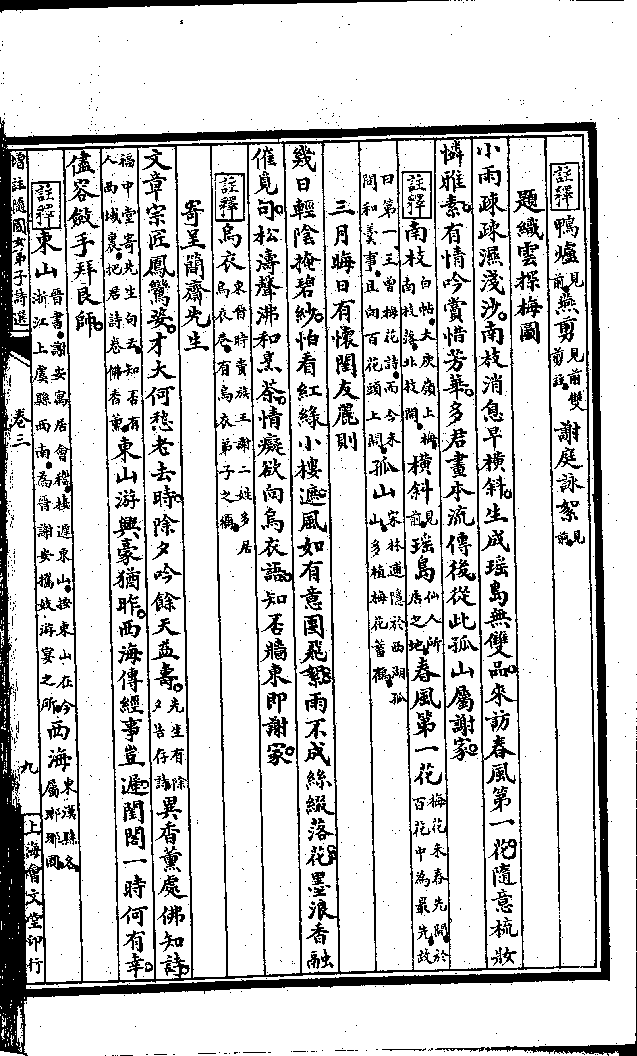 註釋 鴨爐見前 燕剪見前雙剪註 謝庭詠絮見前
題織雲探梅圖
小雨疎疎濕淺沙。南枝消息早橫斜。生成瑶島無雙品。來訪春風第一花。隨意梳妝
憐雅素。有情吟賞惜芳華。多君畫本流傳後。從此孤山屬謝家。
註釋 南枝白帖、大庾嶺上梅、南枝落、北枝開、 橫斜見前 瑶島仙人所居之地、 春風第一花梅花未春先開、於百花中為最先、故
曰第一、王曾梅花詩、而今未問和羹事、且向百花頭上開、 孤山宋林逋隱於西湖孤山、多植梅花蓄鶴、
三月晦日有懷閨友麗則
幾日輕陰掩碧紗。怕看紅綠小樓遮。風如有意團飛絮。雨不成絲綴落花。墨浪香融
催覓句。松濤聲沸和烹茶。情癡欲向烏衣語。知否牆東即謝家。
註釋 烏衣東晉時貴族王謝二姓多居烏衣巷、有烏衣弟子之稱、
寄呈簡齋先生
文章宗匠鳳鸞姿。才大何愁老去時。除夕吟餘天益壽。先生有除夕告存詩、異香薰處佛知詩。
福中堂寄先生句云、知否有人西域裏、把君詩卷佛香薰、東山游興豪猶昨。西海傳經事豈遲。閨閤一時何有幸。
儘容斂手拜良師。
註釋 東山晉書、謝安寓居會稽、棲遲東山、按東山在今浙江上虞縣西南、為晉謝安攜妓游宴之所、 西海東漢縣名、屬瑯琊國、
增註隨園女弟子詩選 卷三 九 上海會文堂印行